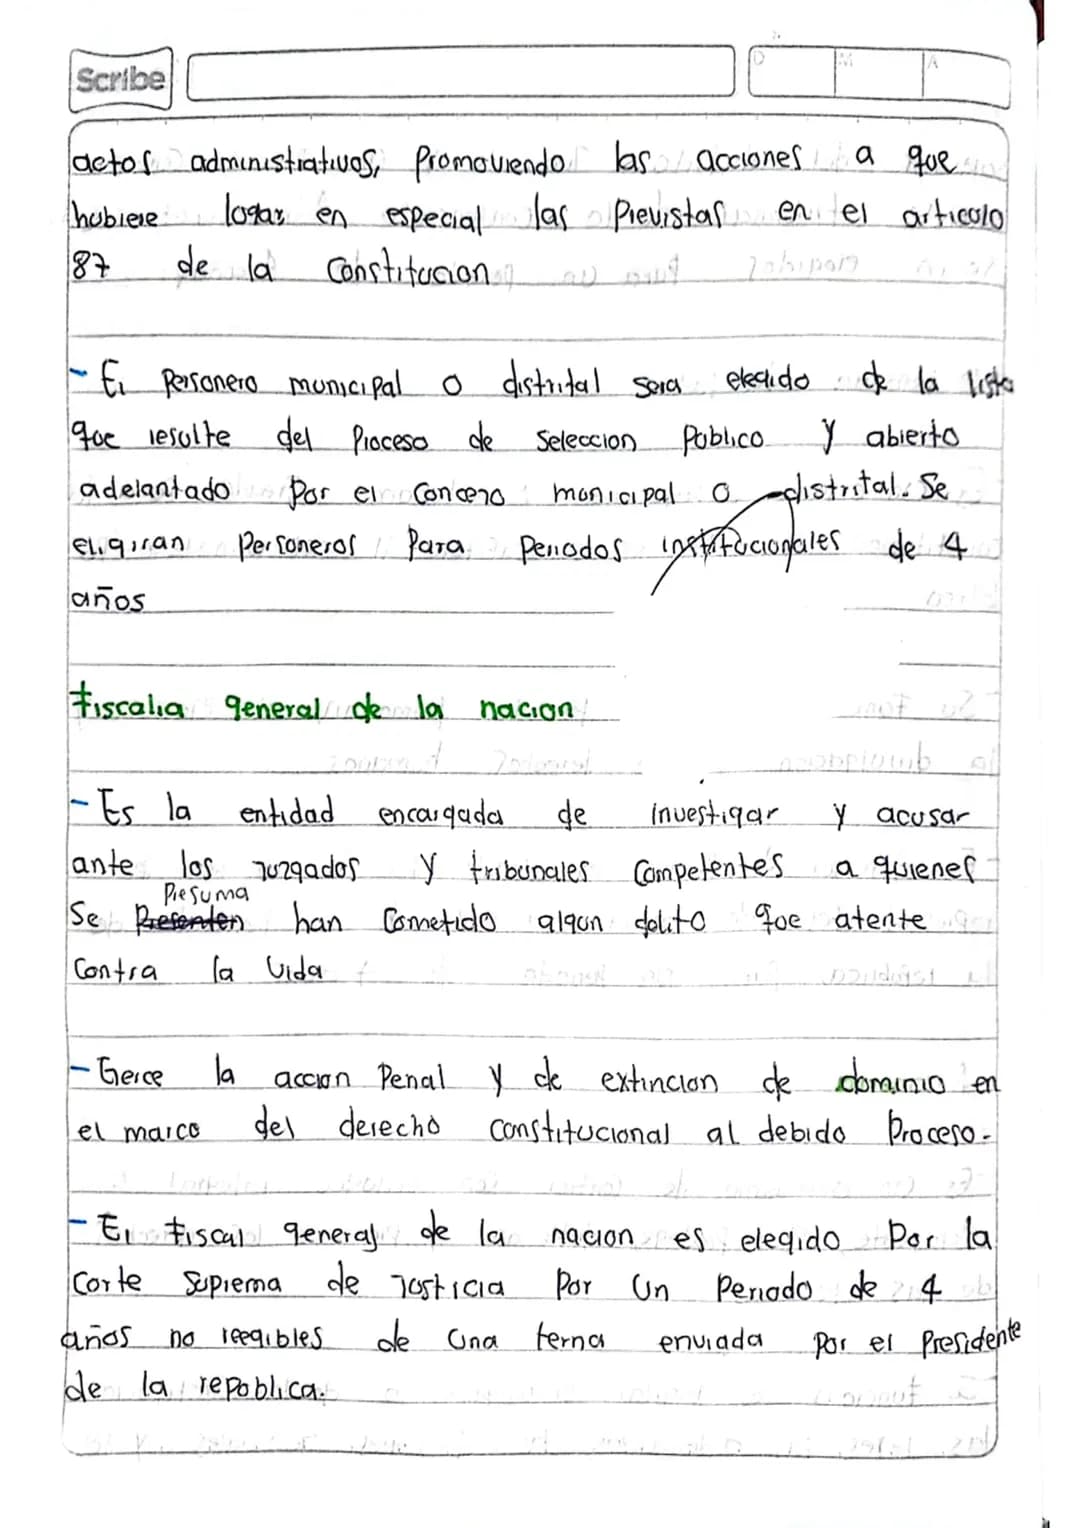 Scribe
D M A
actos administrativos, Promoviendo las acciones a que
hubiere logar en especial las Previstas en el articulo
87 de la Constitucion
- El Personero municipal o distrital sera elegido de la lista
que resulte del Proceso de Seleccion Publico y abierto
adelantado Por el Concero municipal o distrital. Se
eligiran Personeros Para Periodos institucionales de 4
años
Fiscalia general de la nacion
- Es la entidad encargada de investigar y acusar
ante los Juzgados y tribunales Competentes a quienes
Presuma
Se Presenten han Cometido algun delito que atente
Contra la Vida
- Gerce la accion Penal y de extincion de dominio en
el marco del derecho Constitucional al debido Proceso.
- El Fiscal general de la nacion es elegido Por la
Corte Suprema de Justicia Por Un Periodo de 4
años no reegibles de Una terna enviada por el Presidente
de la republica.